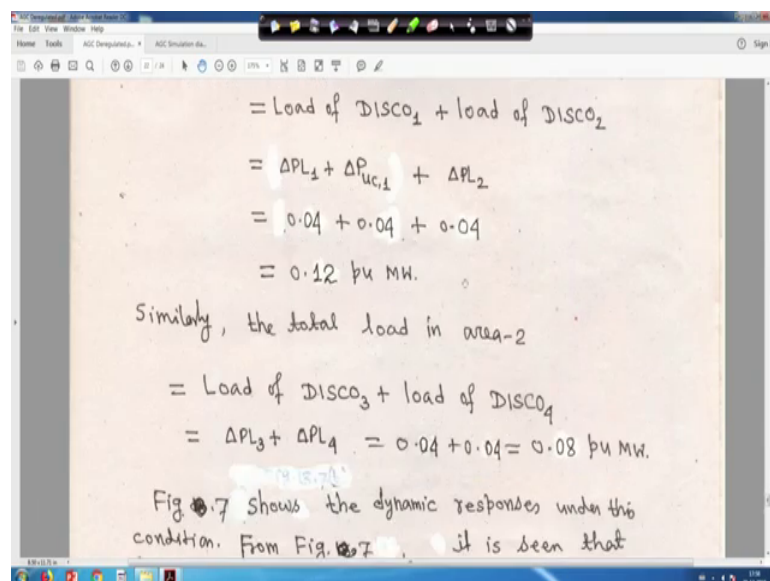 AGC Deregulated.pdf - Adobe Acrobat Reader DC
File Edit View Window Help
Home Tools AGC Deregulated.p... × AGC Simulation dia...
Sign
175%
= Load of DISCO₁ + load of DISCO₂
= ΔPL₁ + ΔP_uc,1 + ΔPL₂
= 0.04 + 0.04 + 0.04
= 0.12 pu MW.
Similarly, the total load in area-2
= Load of DISCO₃ + load of DISCO₄
= ΔPL₃ + ΔPL₄ = 0.04 + 0.04 = 0.08 pu MW.
Fig. .7 shows the dynamic responses under this
condition. From Fig. .7 it is seen that